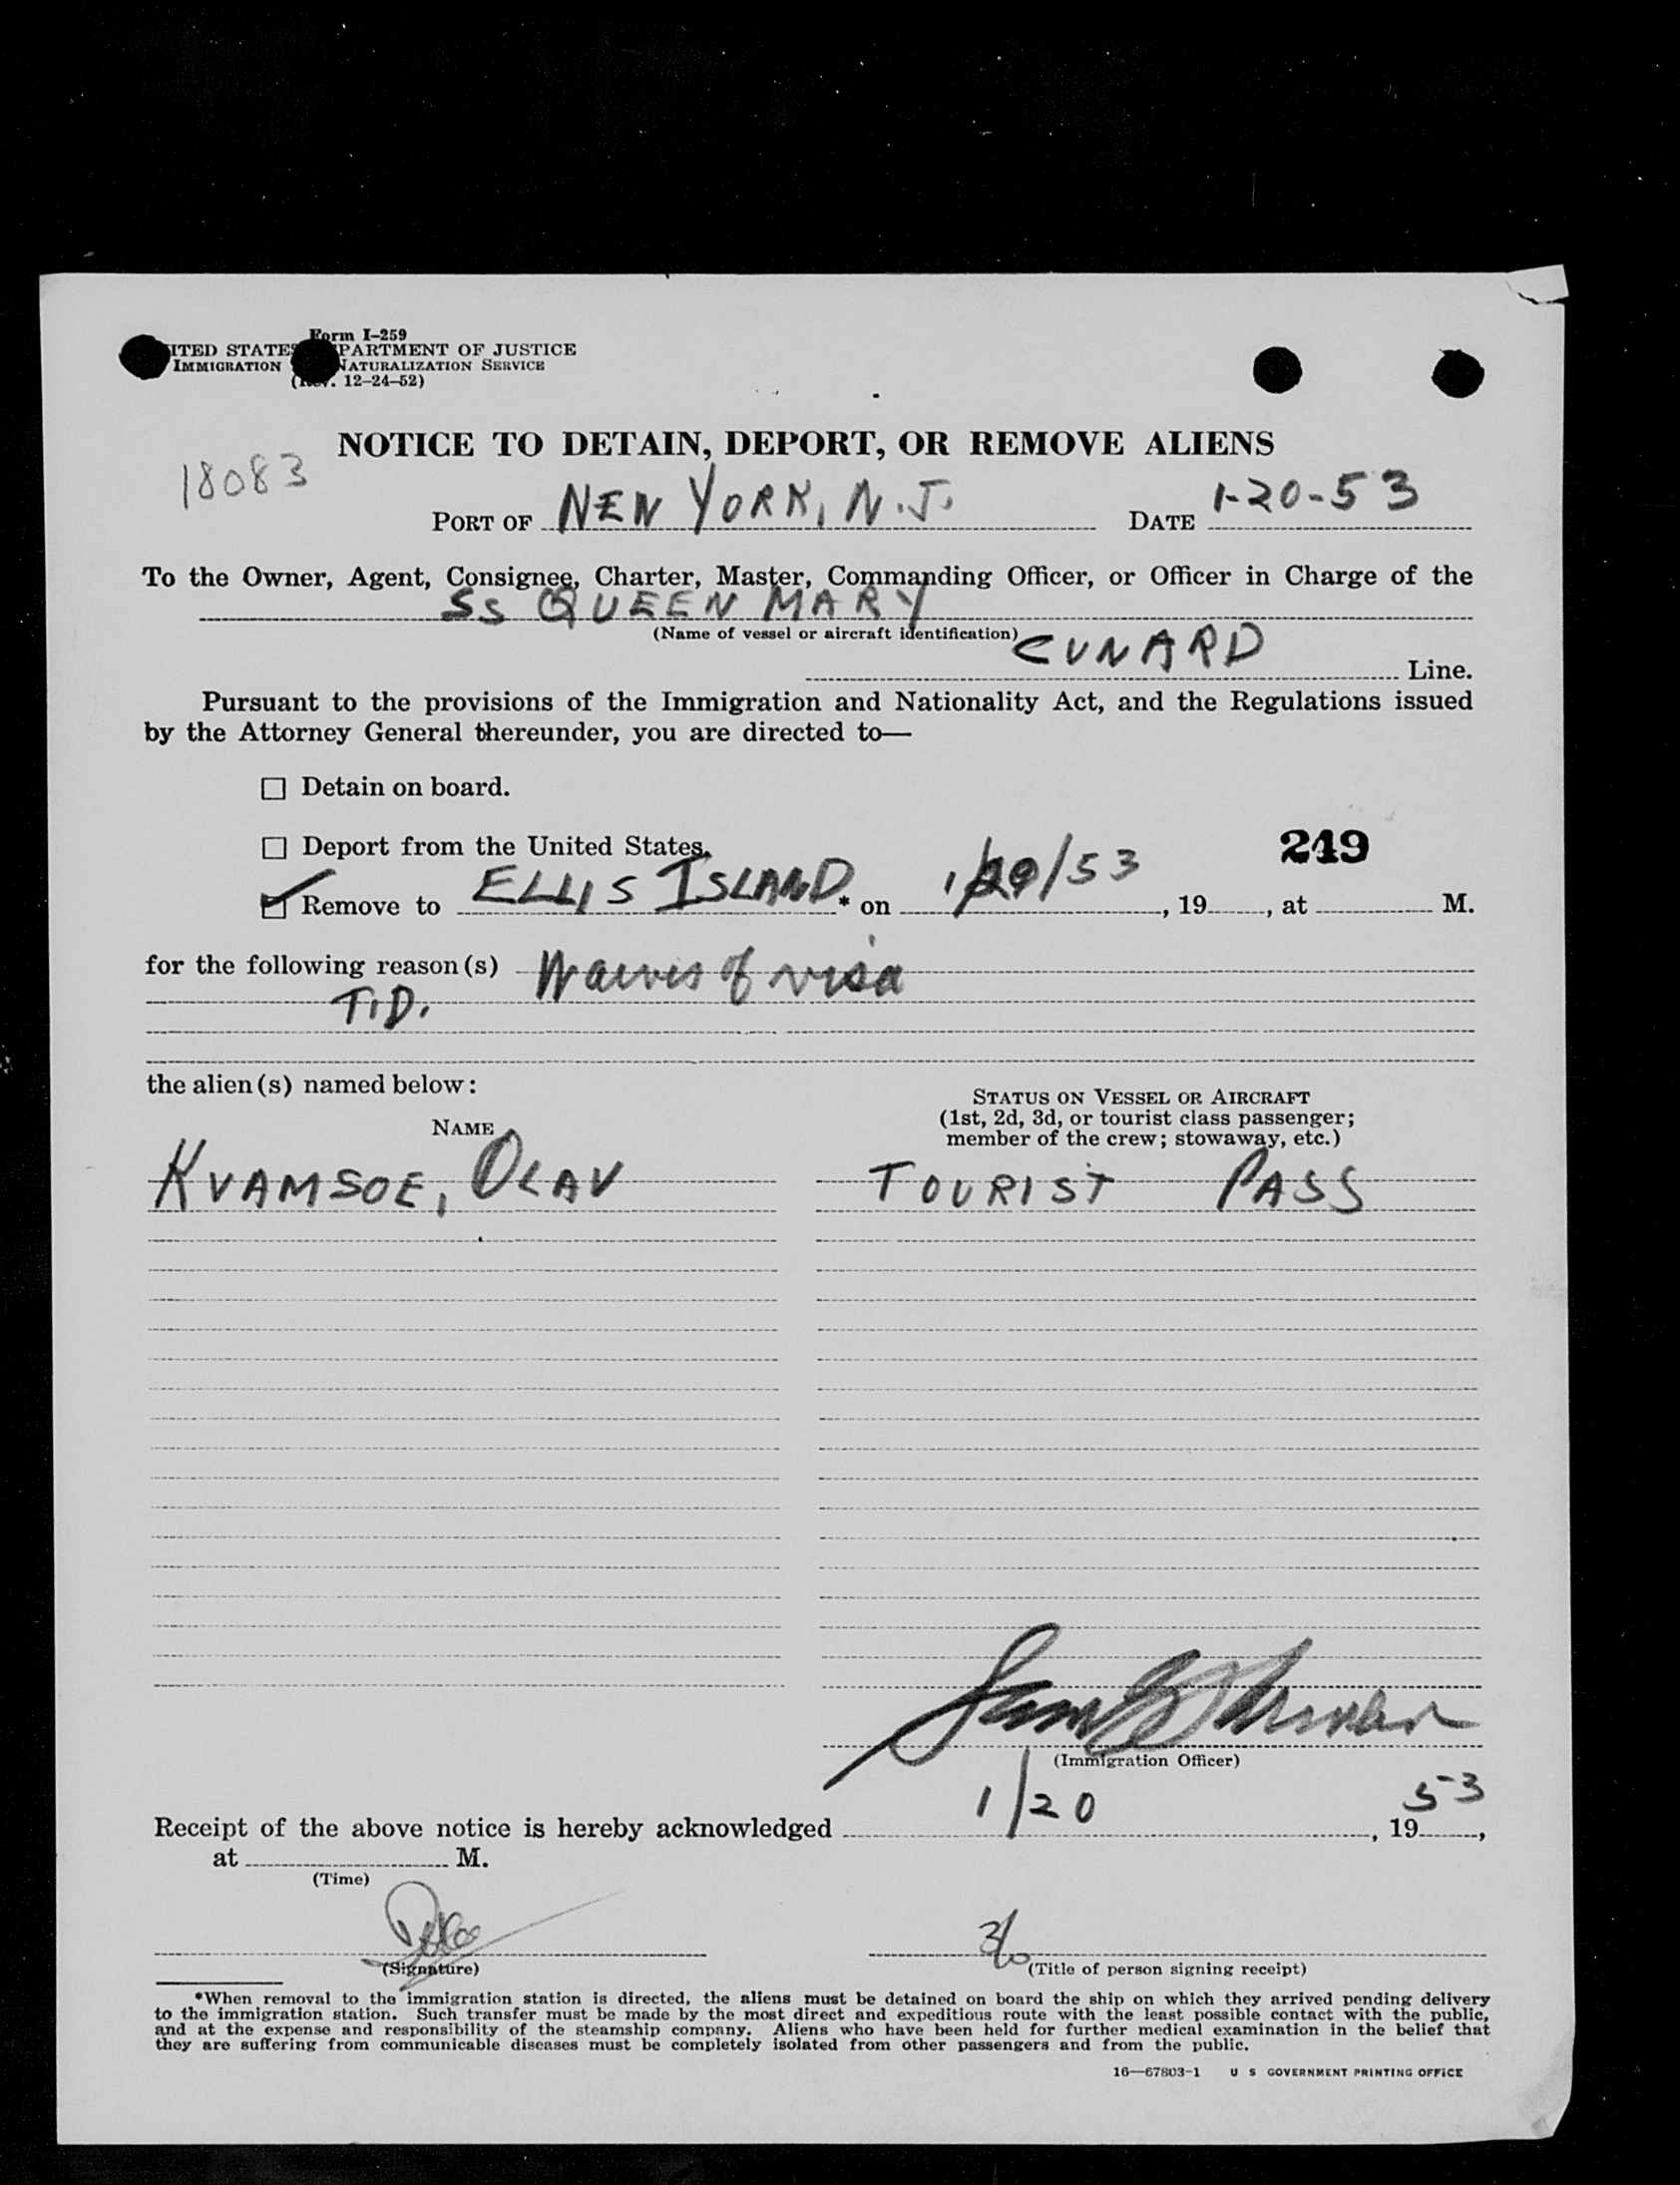 Form I-259
ITED STATES PARTMENT OF JUSTICE
IMMIGRATION NATURALIZATION SERVICE
(Rev. 12-24-52)
NOTICE TO DETAIN, DEPORT, OR REMOVE ALIENS
18083
PORT OF NEW YORK, N.J. DATE 1-20-53
To the Owner, Agent, Consignee, Charter, Master, Commanding Officer, or Officer in Charge of the
SS QUEEN MARY
(Name of vessel or aircraft identification)
CUNARD Line.
Pursuant to the provisions of the Immigration and Nationality Act, and the Regulations issued
by the Attorney General thereunder, you are directed to—
☐ Detain on board.
☐ Deport from the United States.
249
☑ Remove to ELLIS ISLAND * on 1/20/53, 19, at M.
for the following reason(s) of visa
T.D.
the alien(s) named below:
STATUS ON VESSEL OR AIRCRAFT
(1st, 2d, 3d, or tourist class passenger;
member of the crew; stowaway, etc.)
NAME
KVAMSOE, OLAV TOURIST PASS
(Immigration Officer)
Receipt of the above notice is hereby acknowledged 1/20, 1953,
at M.
(Time)
3/o
(Signature) (Title of person signing receipt)
*When removal to the immigration station is directed, the aliens must be detained on board the ship on which they arrived pending delivery
to the immigration station. Such transfer must be made by the most direct and expeditious route with the least possible contact with the public,
and at the expense and responsibility of the steamship company. Aliens who have been held for further medical examination in the belief that
they are suffering from communicable diseases must be completely isolated from other passengers and from the public.
16—67803-1 U S GOVERNMENT PRINTING OFFICE